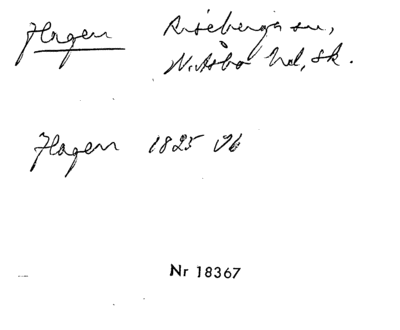 Hagen Riseberga sn,
N. Åsbo hd, Sk.
Hagen 1825 Vb
Nr 18367